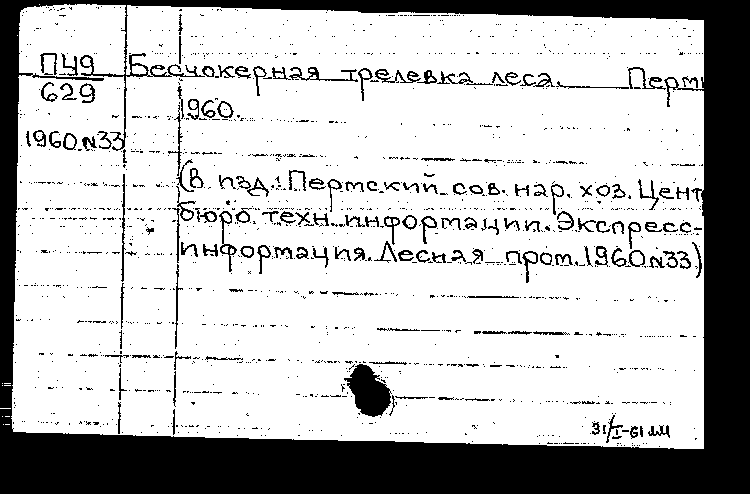 П49 Бесчокерная трелевка леса. Перм
629
1960.
1960.N33
(В изд.: Пермский сов. нар. хоз. Цент
бюро техн. информации. Экспресс-
информация. Лесная пром. 1960 N33)
31/I-61